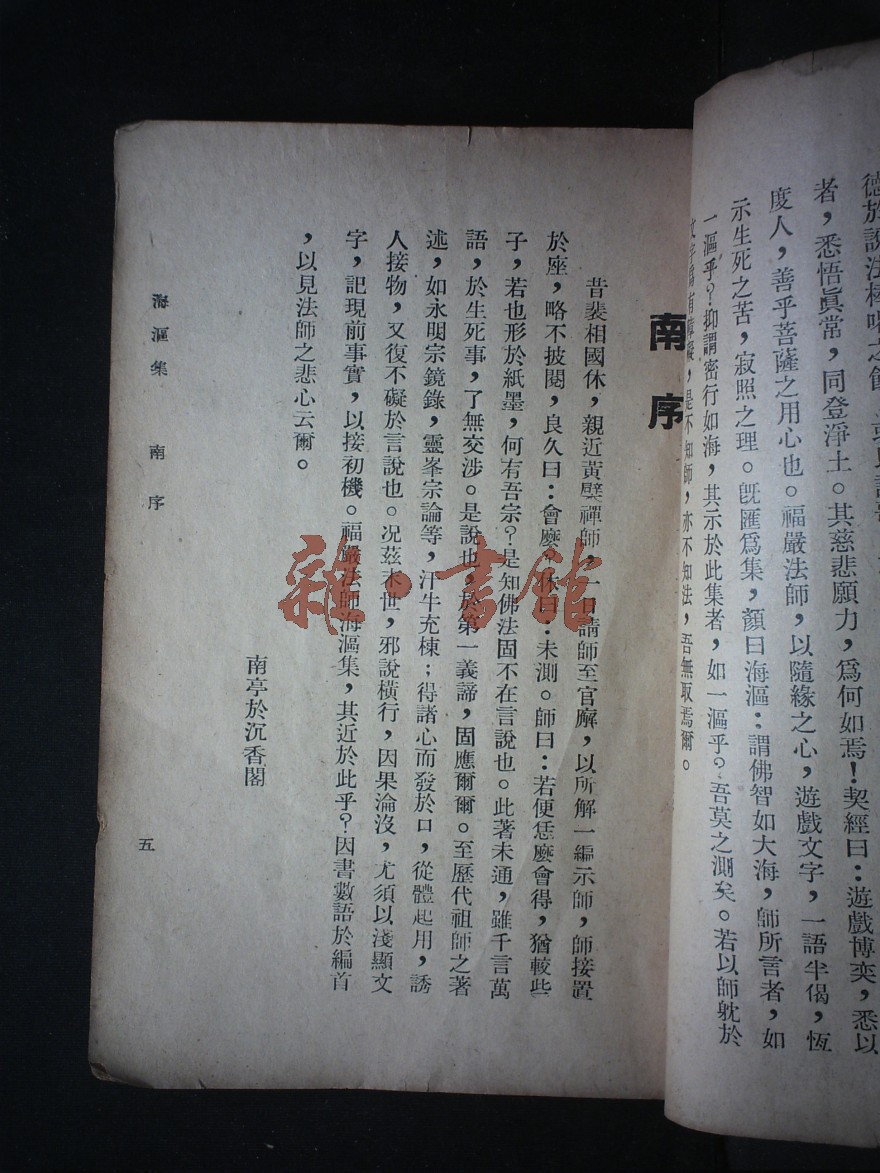 者，悉悟眞常，同登淨土。其慈悲願力，爲何如焉！契經曰：遊戲博奕，悉以
度人，善乎菩薩之用心也。福嚴法師，以隨緣之心，遊戲文字，一語半偈，恆
示生死之苦，寂照之理。旣匯爲集，顏曰海漚：謂佛智如大海，師所言者，如
一漚乎？抑謂密行如海，其示於此集者，如一漚乎？吾莫之測矣。若以師躭於
是不知師，亦不知法，吾無取焉爾。
南序
昔裴相國休，親近黃檗禪師，一日請師至官廨，以所解一編示師，師接置
於座，略不披閱，良久曰：會麼？休曰：未測。師曰：若便恁麼會得，猶較些
子，若也形於紙墨，何有吾宗？是知佛法固不在言說也。此著未通，雖千言萬
語，於生死事，了無交涉。是說也，於第一義諦，固應爾爾。至歷代祖師之著
述，如永明宗鏡錄，靈峯宗論等，汗牛充棟；得諸心而發於口，從體起用，誘
人接物，又復不礙於言說也。况茲末世，邪說橫行，因果淪沒，尤須以淺顯文
字，記現前事實，以接初機。福嚴法師海漚集，其近於此乎？因書數語於編首
，以見法師之悲心云爾。
南亭於沉香閣
海漚集　南序　五
雜·書館